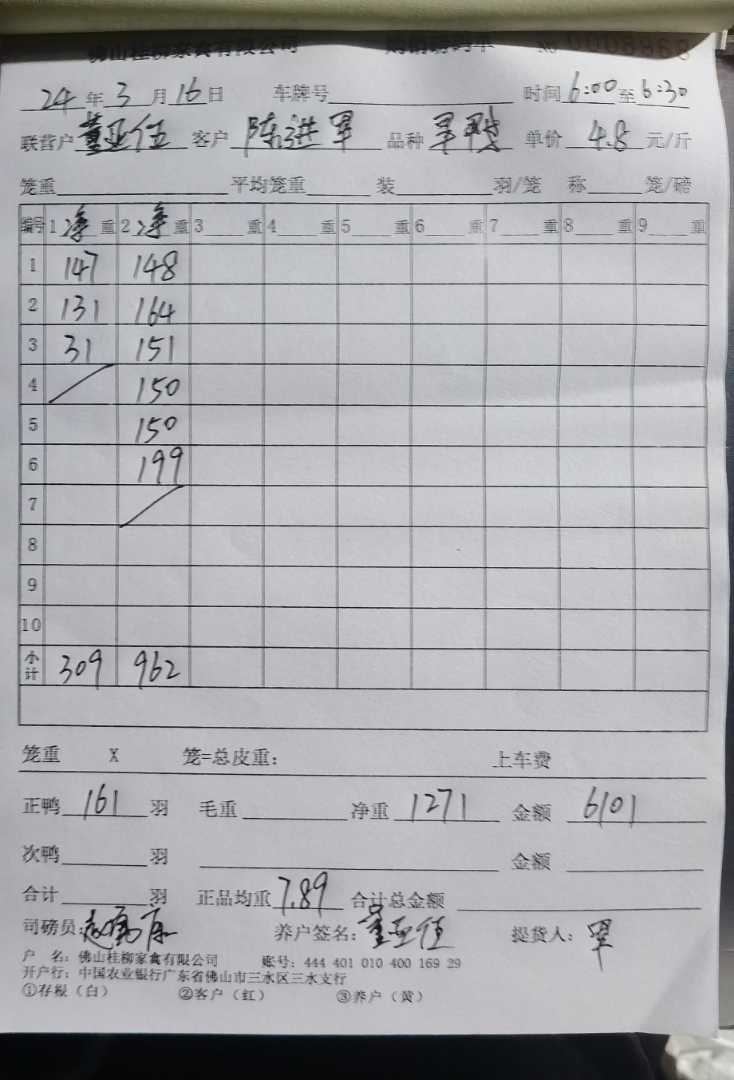 佛山桂柳家禽有限公司 购销磅码单 № 0008868
24年3月16日 车牌号 时间6:00至6:30
联营户董亚伍 客户 陈进军 品种 单价 4.8 元/斤
笼重 平均笼重 装 羽/笼 称 笼/磅
编号 1净重 2净重 3 重 4 重 5 重 6 重 7 重 8 重 9 重
1 147 148
2 131 164
3 31 151
4 150
5 150
6 199
7
8
9
10
小计 309 962
笼重 X 笼=总皮重: 上车费
正鸭 161 羽 毛重 净重 1271 金额 6101
次鸭 羽 金额
合计 羽 正品均重 7.89 合计总金额
司磅员: 养户签名: 董亚伍 提货人:
户 名: 佛山桂柳家禽有限公司 账号: 444 401 010 400 169 29
开户行: 中国农业银行广东省佛山市三水区三水支行
①存根(白) ②客户(红) ③养户(黄)